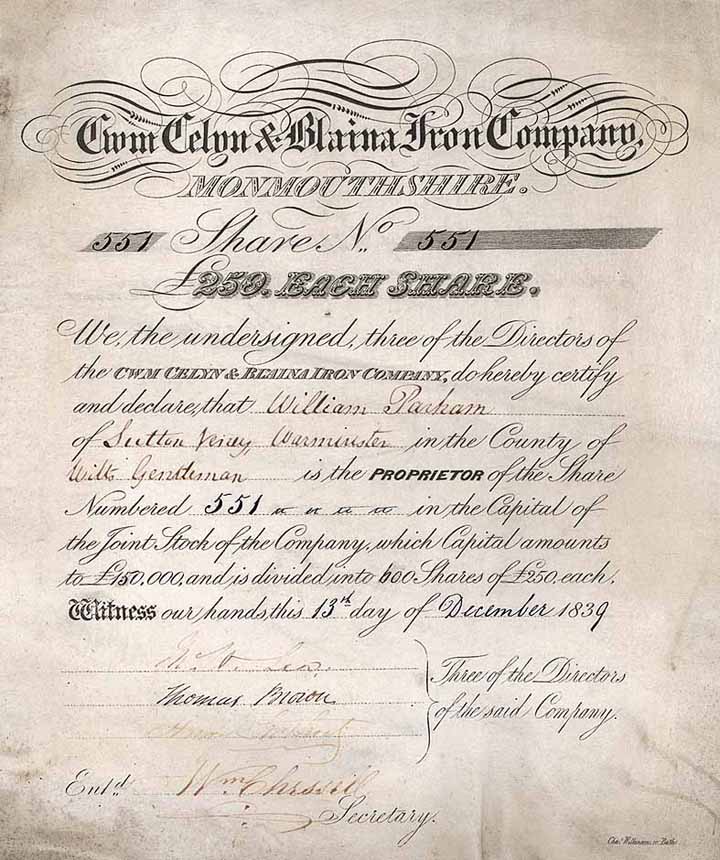 Cwm Celyn & Blaina Iron Company,
MONMOUTHSHIRE.
551 Share No. 551
£250. EACH SHARE.
We, the undersigned, three of the Directors of
the CWM CELYN & BLAINA IRON COMPANY, do hereby certify
and declare, that William Parham
of Sutton Veney, Warminster in the County of
Wilts Gentleman is the PROPRIETOR of the Share
Numbered 551 in the Capital of
the Joint Stock of the Company, which Capital amounts
to £150,000, and is divided into 600 Shares of £250, each.
Witness our hands, this 13th day of December 1839
Thomas Brown
Three of the Directors
of the said Company.
Entd. Wm. Chessell
Secretary.
Chas. Wilkinson sc. Bath